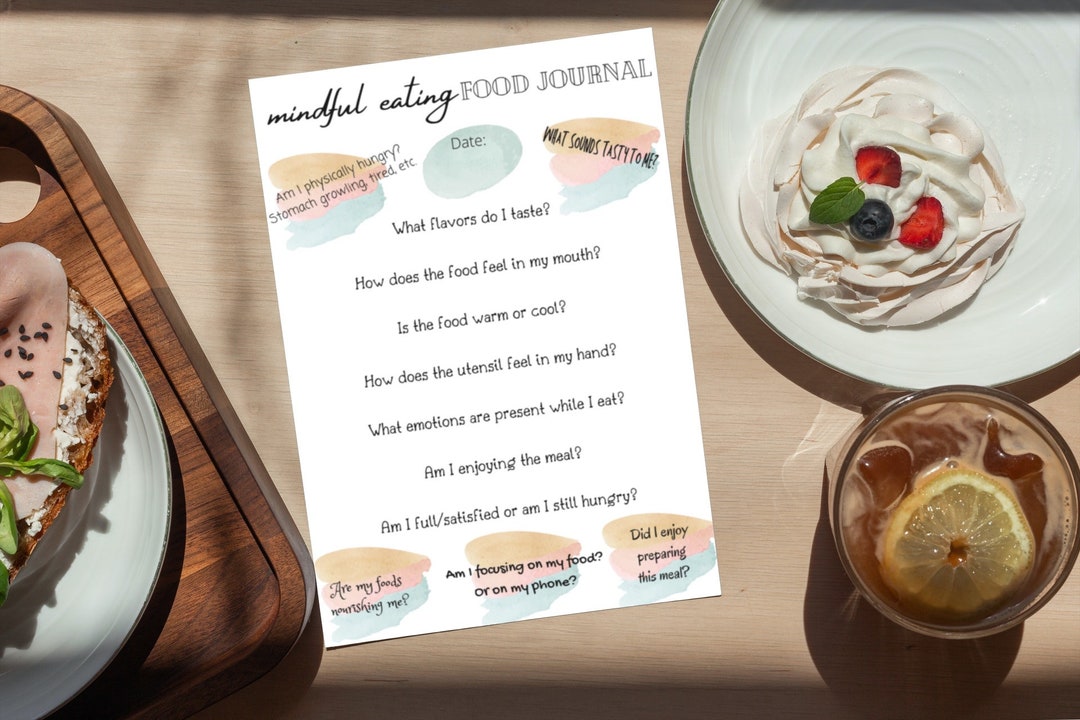 mindful eating FOOD JOURNAL
Am I physically hungry?
Stomach growling, tired, etc.
Date:
WHAT SOUNDS TASTY TO ME?
What flavors do I taste?
How does the food feel in my mouth?
Is the food warm or cool?
How does the utensil feel in my hand?
What emotions are present while I eat?
Am I enjoying the meal?
Am I full/satisfied or am I still hungry?
Are my foods
nourishing me?
Am I focusing on my food?
or on my phone?
Did I enjoy
preparing
this meal?